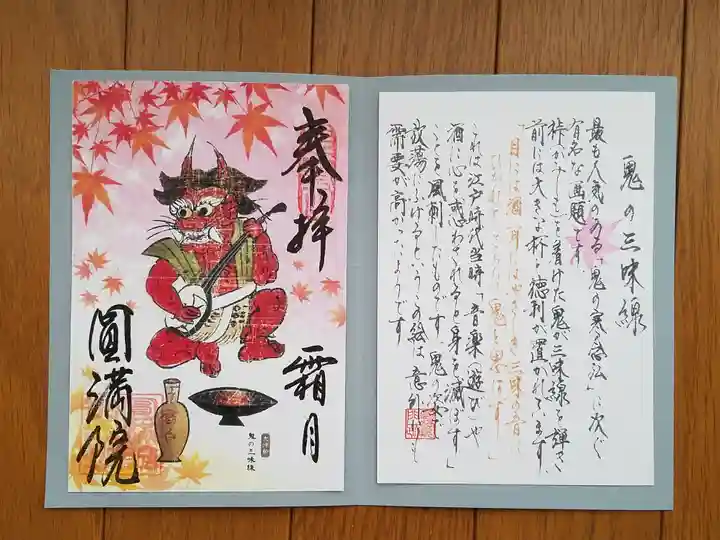 奉拝
霜月
圓満院
大津絵
鬼の三味線
鬼の三味線
最も人気のある「鬼の寒念仏」に次ぐ
有名な画題です。
裃(かみしも)を着けた鬼が三味線を弾き
前には大きな杯、徳利が置かれてます
これは江戸時代当時「音楽(遊び)や
酒に心を惑わされると身を滅ぼす」
ことを風刺したものです。鬼の姿で
放蕩にふけるというこの絵は意外にも
需要が高かったようです